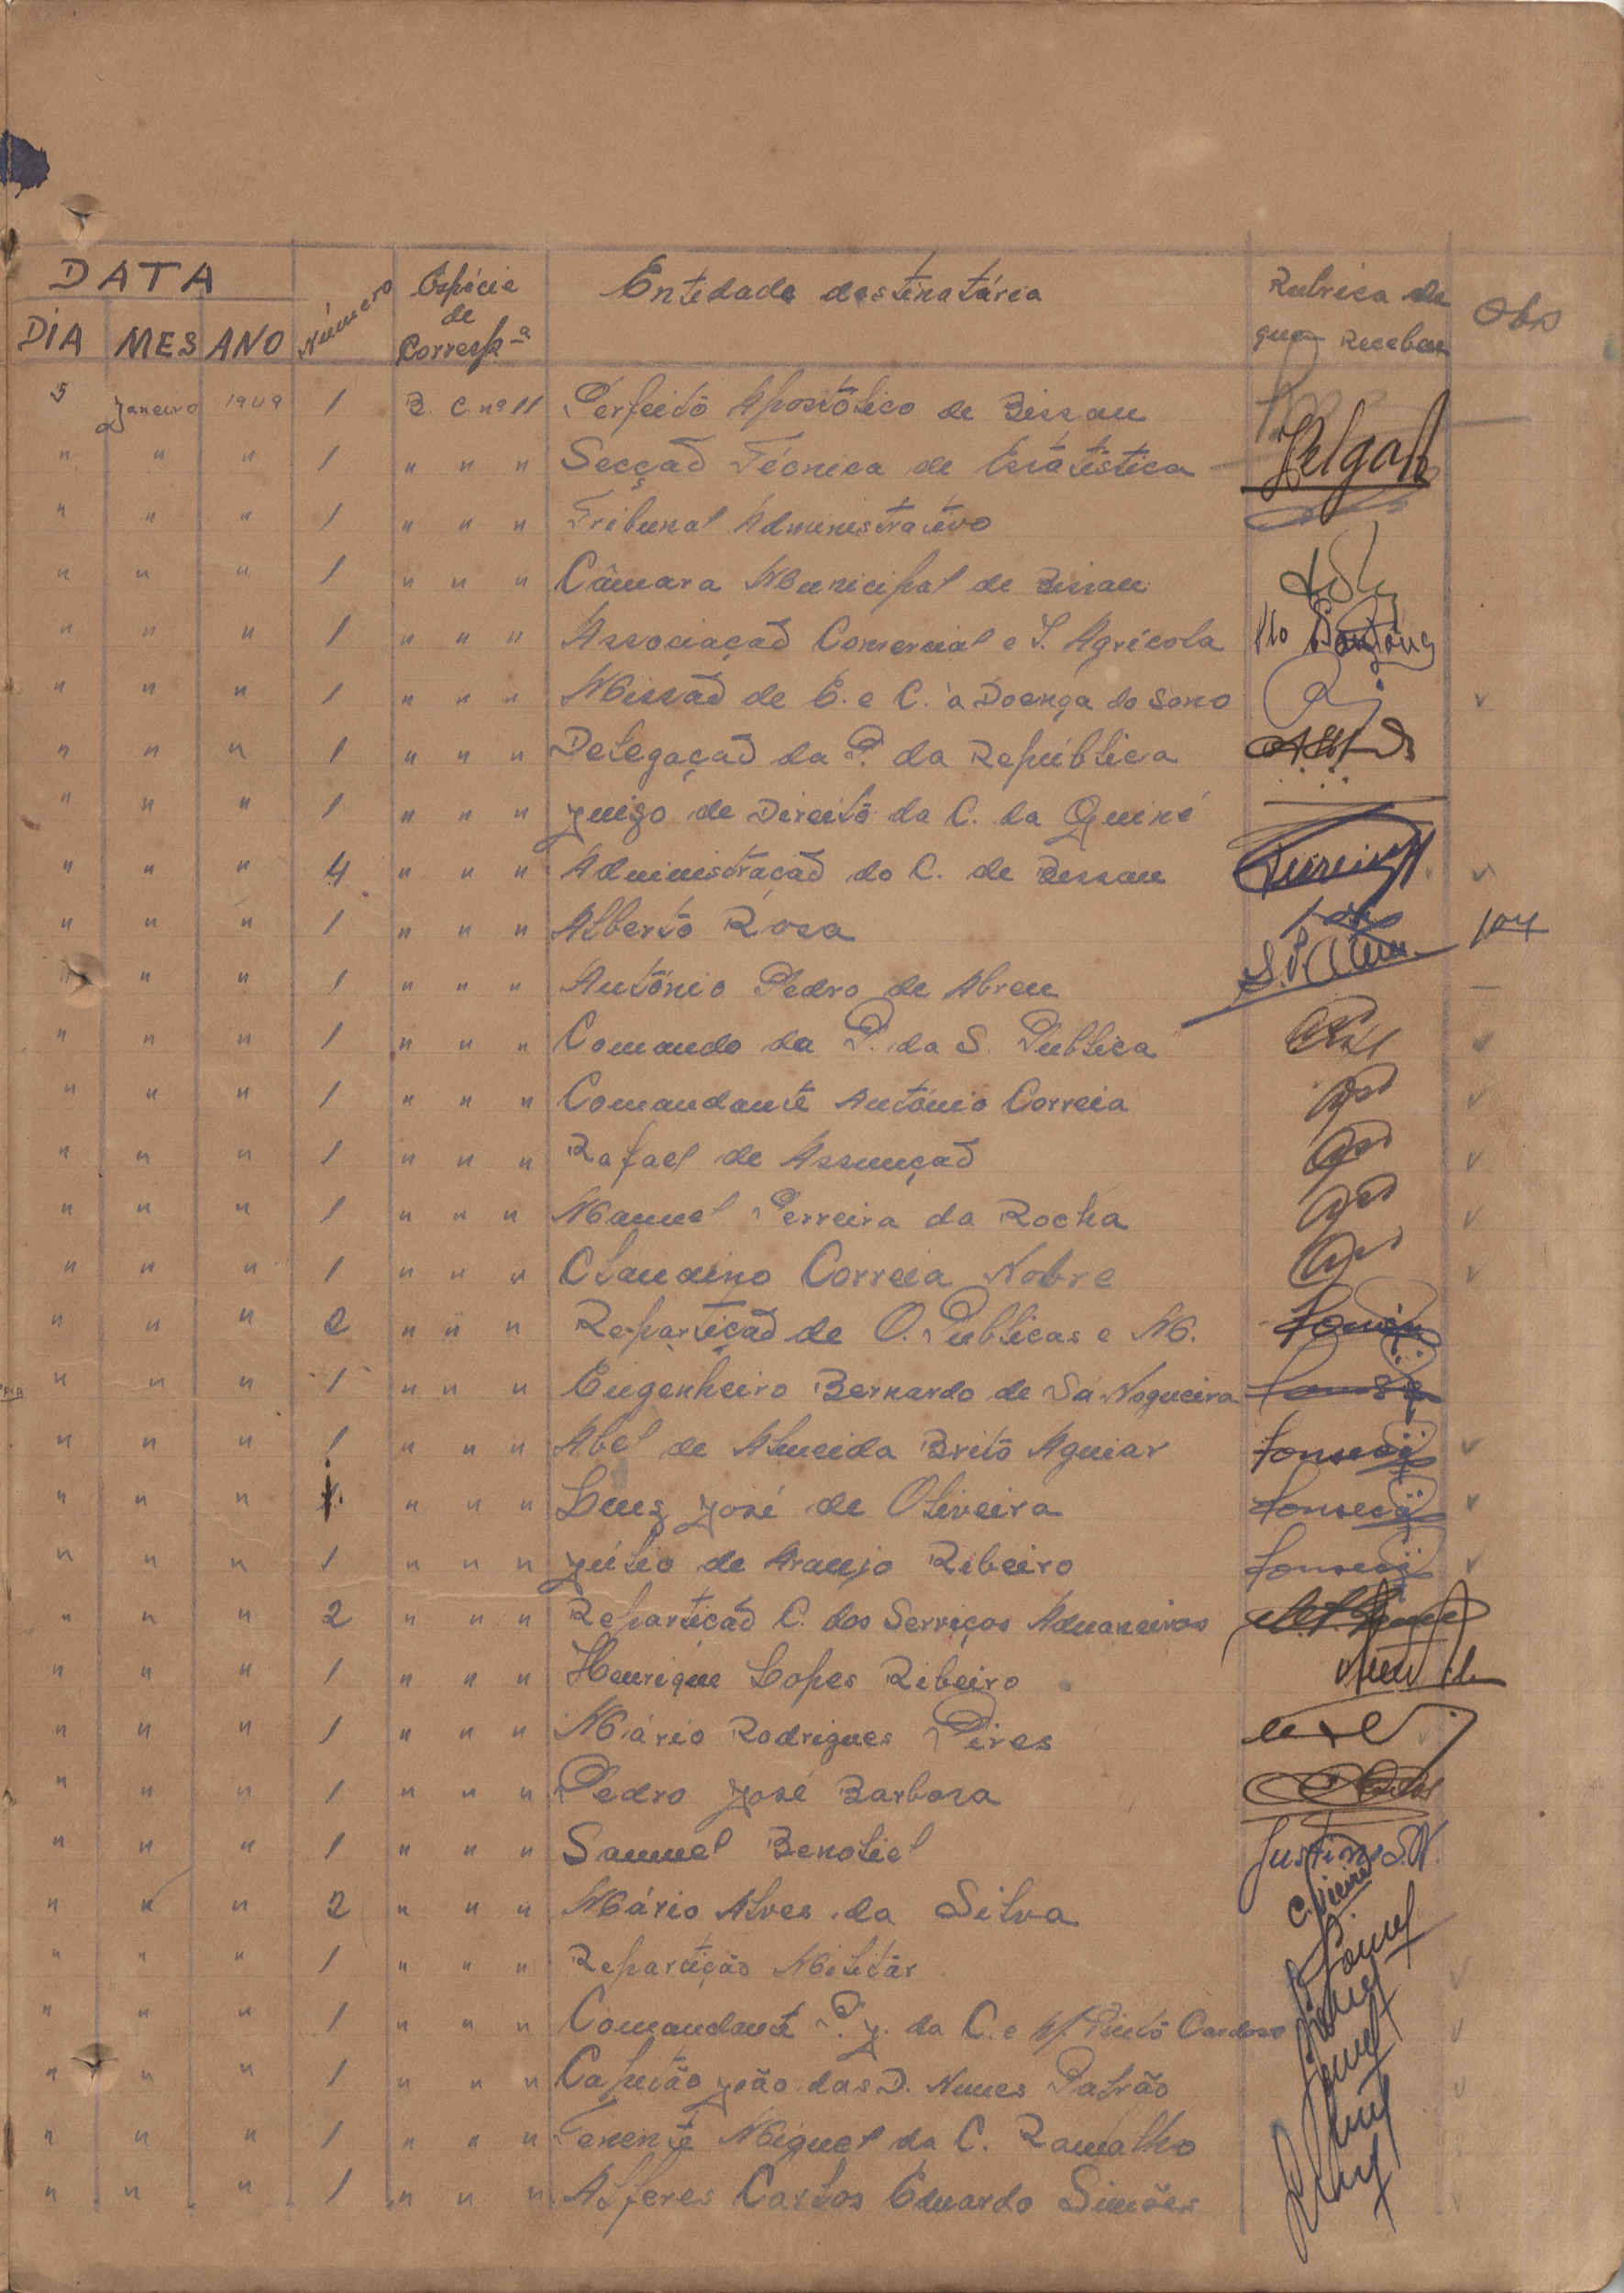 DATA Número Espécie de Correspª Entidade destinatária Rubrica de quem Recebeu Obs
DIA MES ANO
5 Janeiro 1949 1 B. C. nº 11 Perfeito Apostólico de Bissau
" " " 1 " " " Secção Técnica de Estatística
" " " 1 " " " Tribunal Administrativo
" " " 1 " " " Câmara Municipal de Bissau
" " " 1 " " " Associação Comercial e I. Agrícola
" " " 1 " " " Missão de E. e C. à Doença do Sono
" " " 1 " " " Delegação da P. da República
" " " 1 " " " Juizo de Direito da C. da Guiné
" " " 4 " " " Administração do C. de Bissau
" " " 1 " " " Alberto Rosa 104
" " " 1 " " " António Pedro de Abreu
" " " 1 " " " Comando da P. da S. Publica
" " " 1 " " " Comandante António Correia
" " " 1 " " " Rafael de Assunção
" " " 1 " " " Manuel Perreira da Rocha
" " " 1 " " " Claudino Correia Nobre
" " " 2 " " " Repartição de O. Publicas e M.
" " " 1 " " " Engenheiro Bernardo de Sá Nogueira Fonseca
" " " 1 " " " Abel de Almeida Brito Aguiar Fonseca
" " " 1 " " " Luiz José de Oliveira Fonseca
" " " 1 " " " Júlio de Araujo Ribeiro Fonseca
" " " 2 " " " Repartição C. dos Serviços Aduaneiros
" " " 1 " " " Henrique Lopes Ribeiro
" " " 1 " " " Mário Rodrigues Pires
" " " 1 " " " Pedro José Barbosa
" " " 1 " " " Samuel Benoliel Justino S.N.
" " " 2 " " " Mário Alves da Silva
" " " 1 " " " Repartição Militar
" " " 1 " " " Comandante P. J. da C. e M. Pinto Cardoso
" " " 1 " " " Capitão João das D. Nunes Patrão
" " " 1 " " " Tenente Miguel da C. Ramalho
" " " 1 " " " Alferes Carlos Eduardo Simões